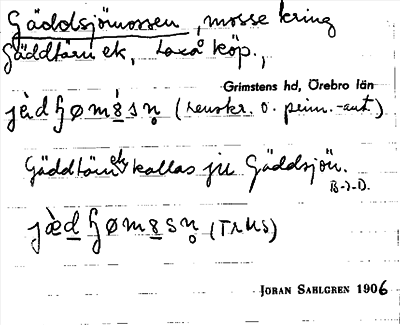 Gäddsjömossen, mosse kring
Gäddtärn ek, Laxå köp.,
Grimstens hd, Örebro län
jæ̀dɧøm8́sn̥ (renskr. o. prim.-ant.)
Gäddtärn ek kallas ju Gäddsjön.
B-J-D.
jæ̀dɧøm8sn̥ (Tr US)
JÖRAN SAHLGREN 1906